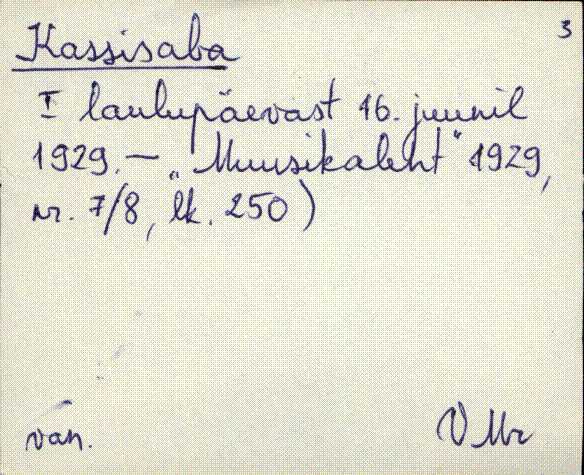 3
Kassisaba
I laulupäevast 16. juunil
1929. — „Muusikaleht" 1929,
nr. 7/8, lk. 250)
ván.
V Mr